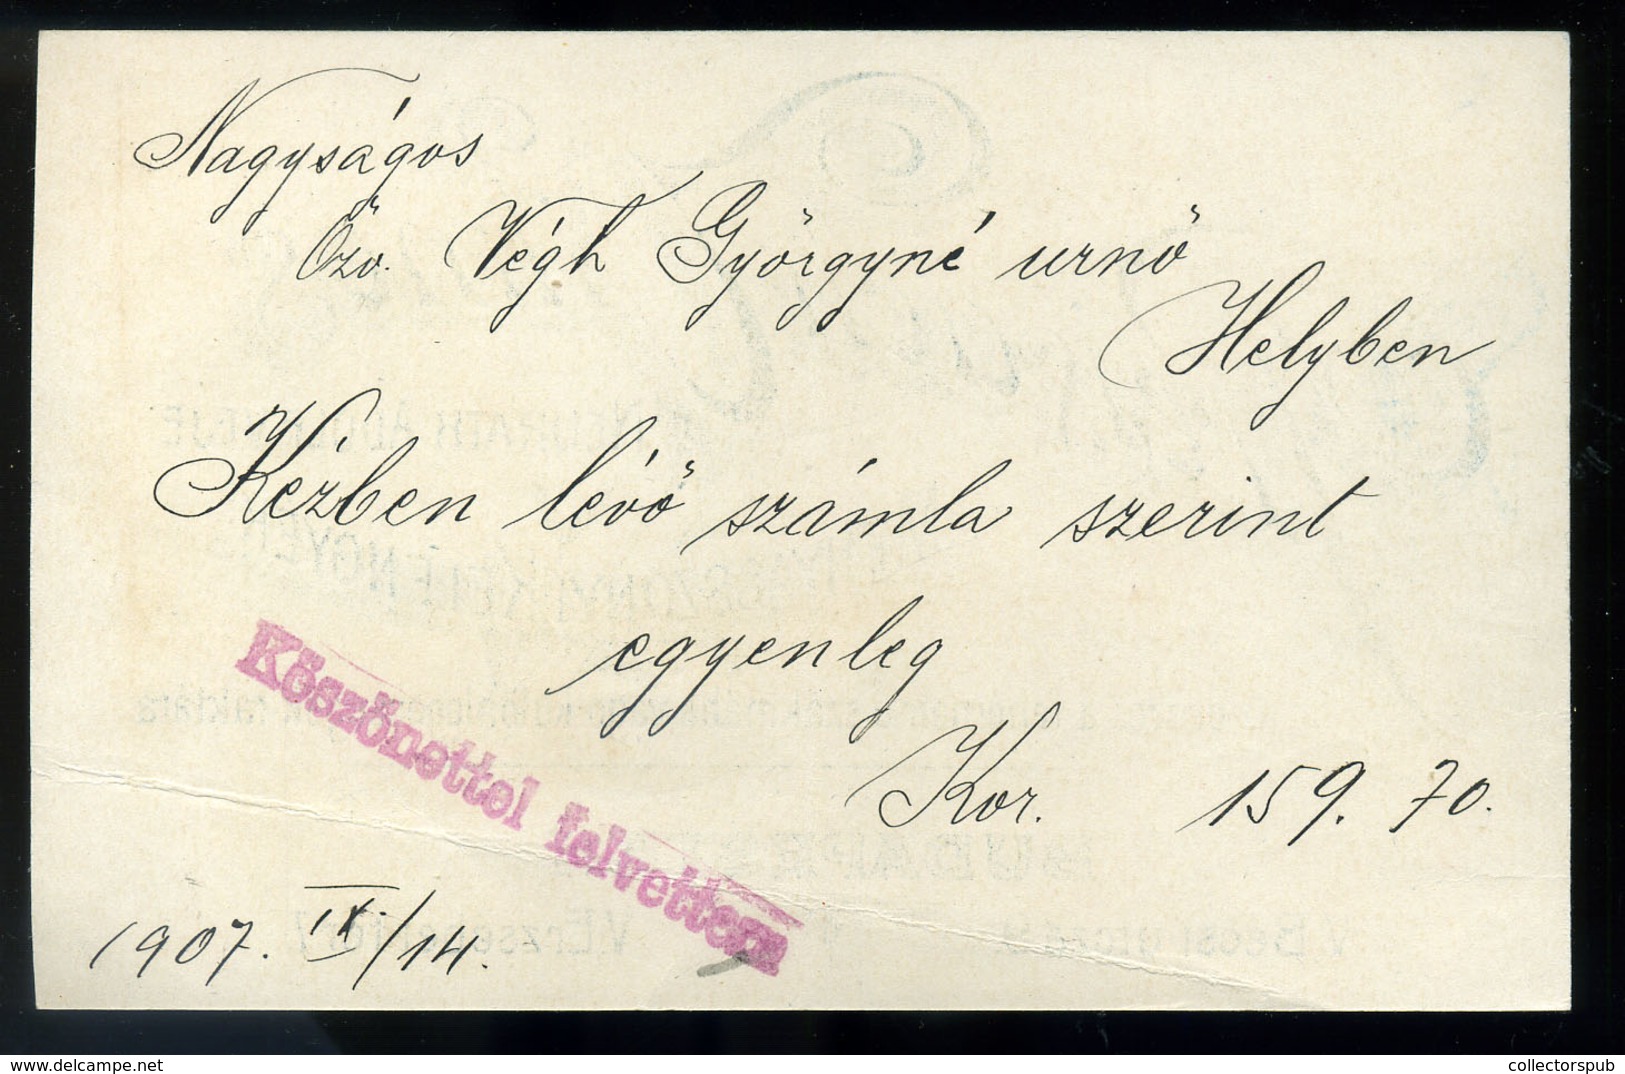 Nagyságos
Özv. Végh Györgyné urnő
Helyben
Kézben lévő számla szerint
egyenleg
Kor. 159.70.
Köszönettel felvettem
1907. IX/14.
collectorspub